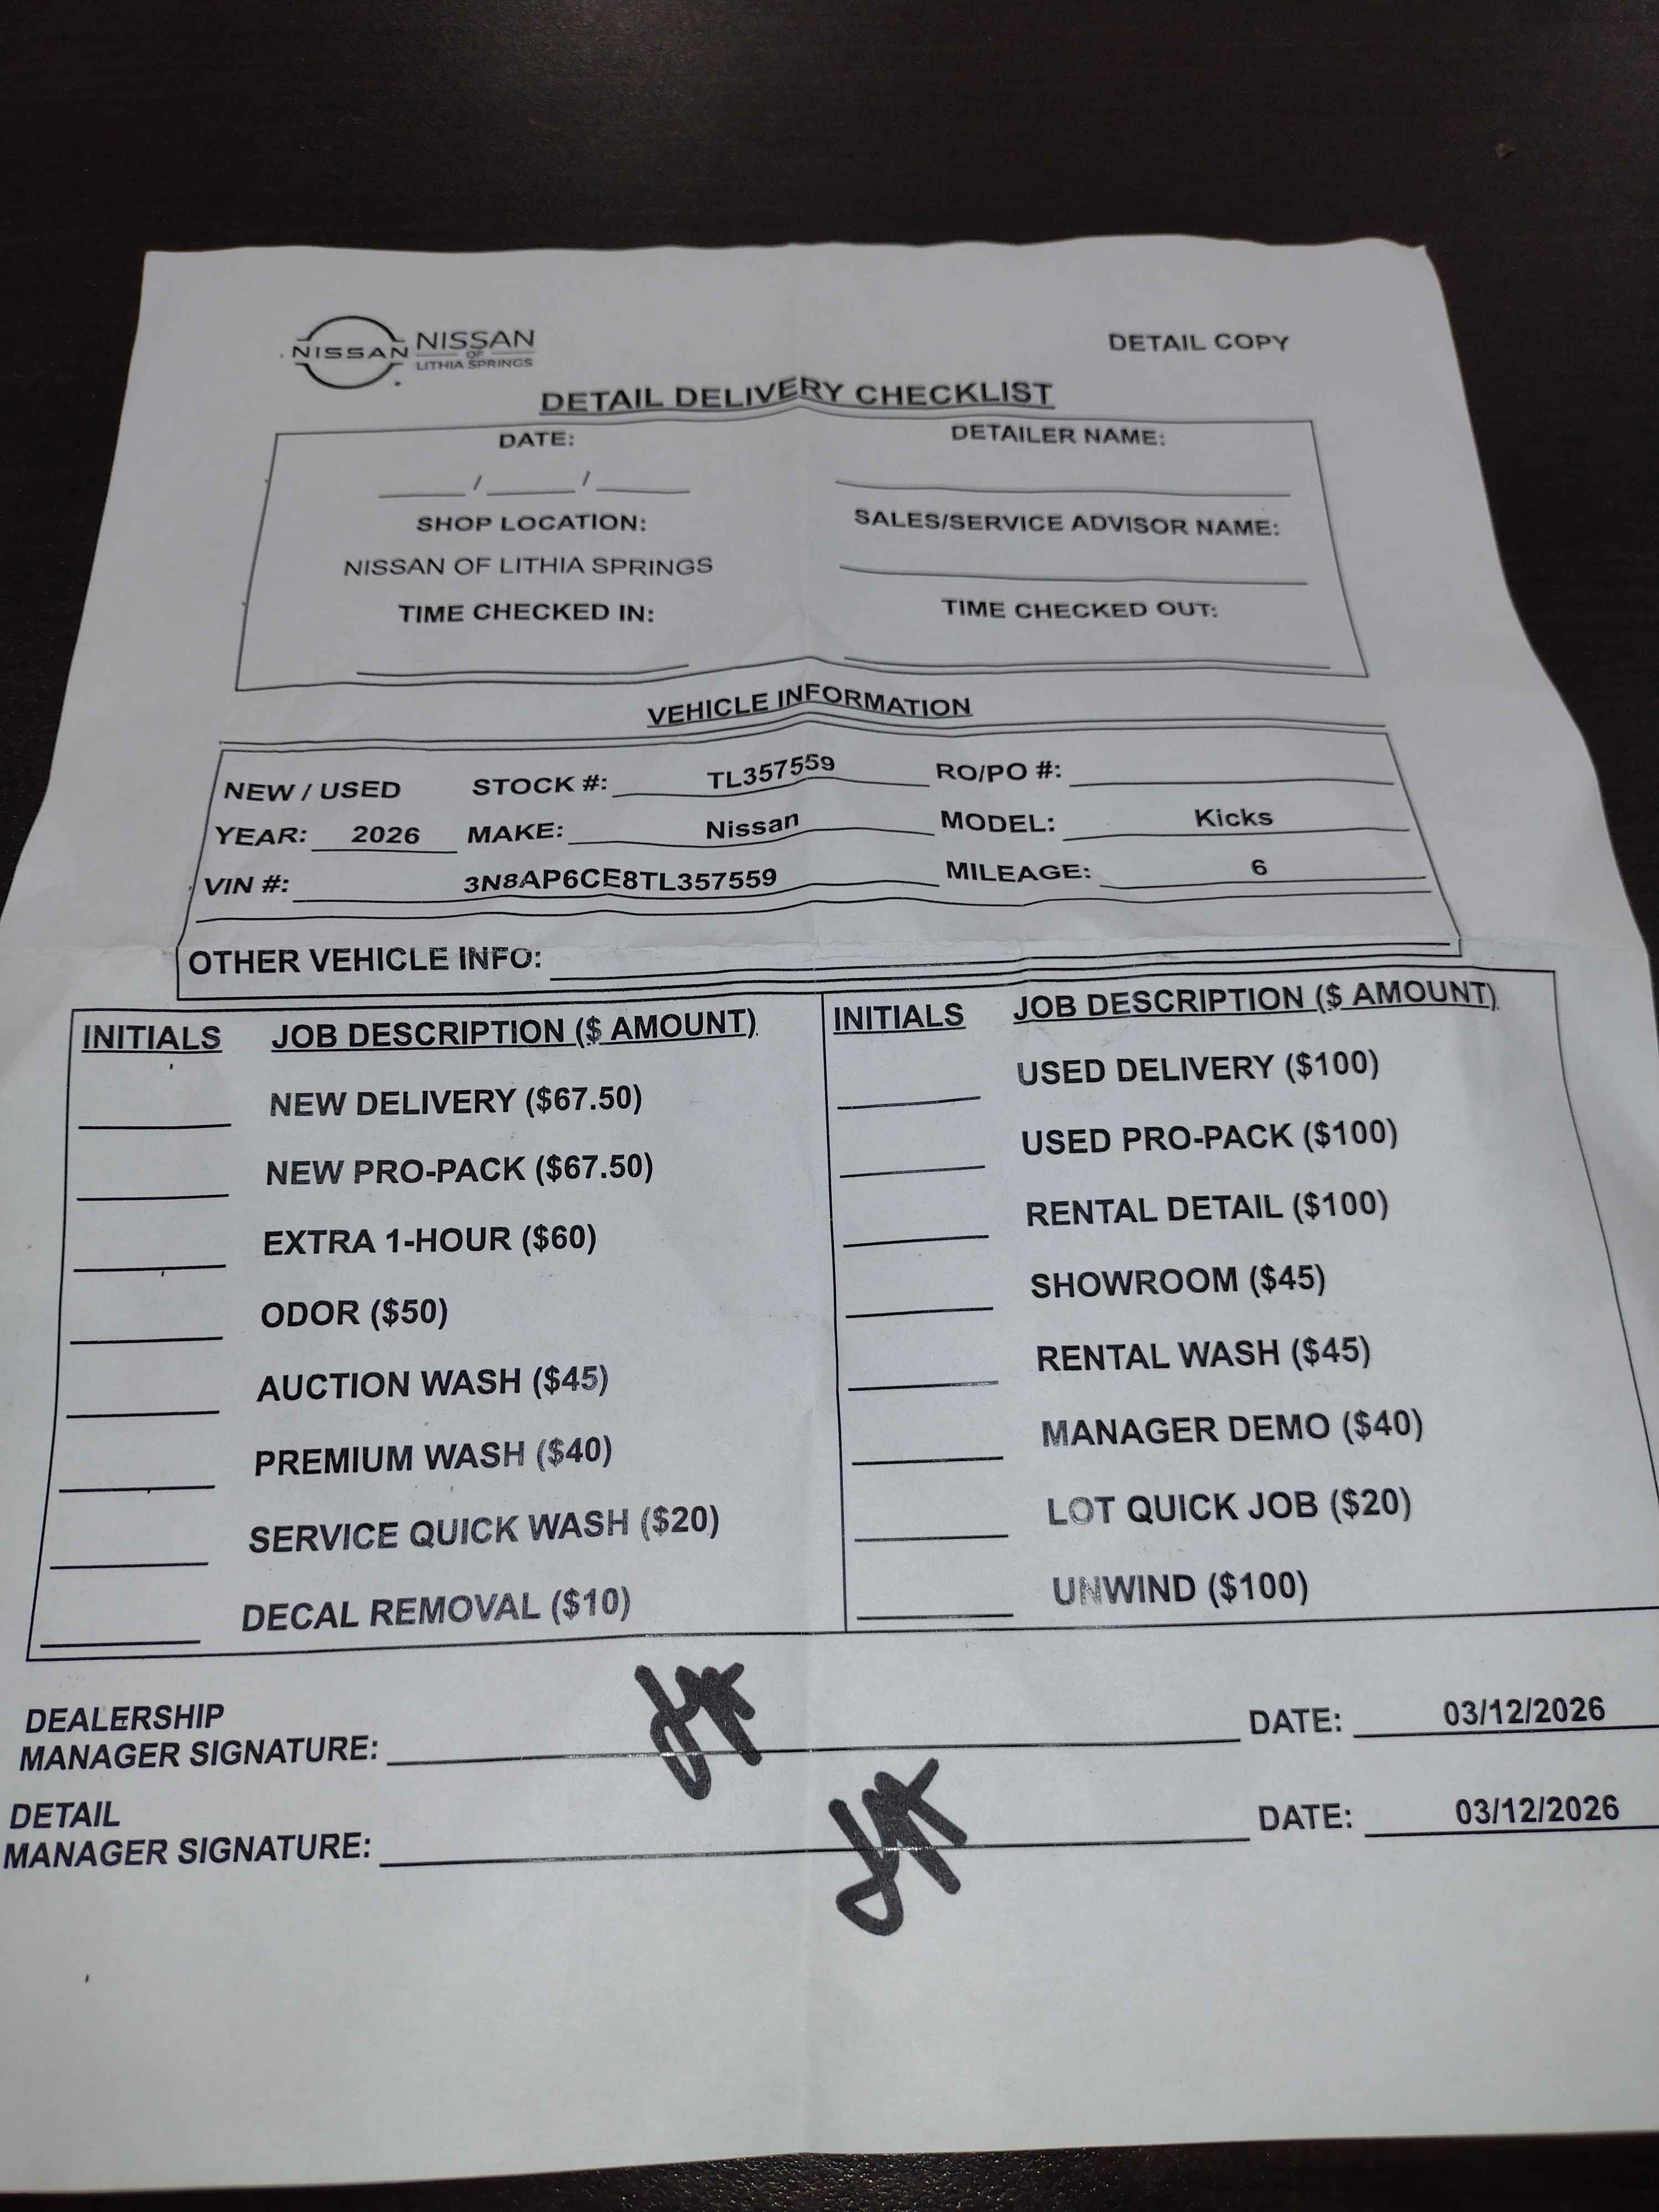 NISSAN NISSAN OF LITHIA SPRINGS
DETAIL COPY
DETAIL DELIVERY CHECKLIST
DATE: DETAILER NAME:
/ /
SHOP LOCATION: SALES/SERVICE ADVISOR NAME:
NISSAN OF LITHIA SPRINGS
TIME CHECKED IN: TIME CHECKED OUT:
VEHICLE INFORMATION
NEW / USED STOCK #: TL357559 RO/PO #:
YEAR: 2026 MAKE: Nissan MODEL: Kicks
VIN #: 3N8AP6CE8TL357559 MILEAGE: 6
OTHER VEHICLE INFO:
INITIALS JOB DESCRIPTION ($ AMOUNT)
NEW DELIVERY ($67.50)
NEW PRO-PACK ($67.50)
EXTRA 1-HOUR ($60)
ODOR ($50)
AUCTION WASH ($45)
PREMIUM WASH ($40)
SERVICE QUICK WASH ($20)
DECAL REMOVAL ($10)
INITIALS JOB DESCRIPTION ($ AMOUNT)
USED DELIVERY ($100)
USED PRO-PACK ($100)
RENTAL DETAIL ($100)
SHOWROOM ($45)
RENTAL WASH ($45)
MANAGER DEMO ($40)
LOT QUICK JOB ($20)
UNWIND ($100)
DEALERSHIP
MANAGER SIGNATURE: DATE: 03/12/2026
DETAIL
MANAGER SIGNATURE: DATE: 03/12/2026